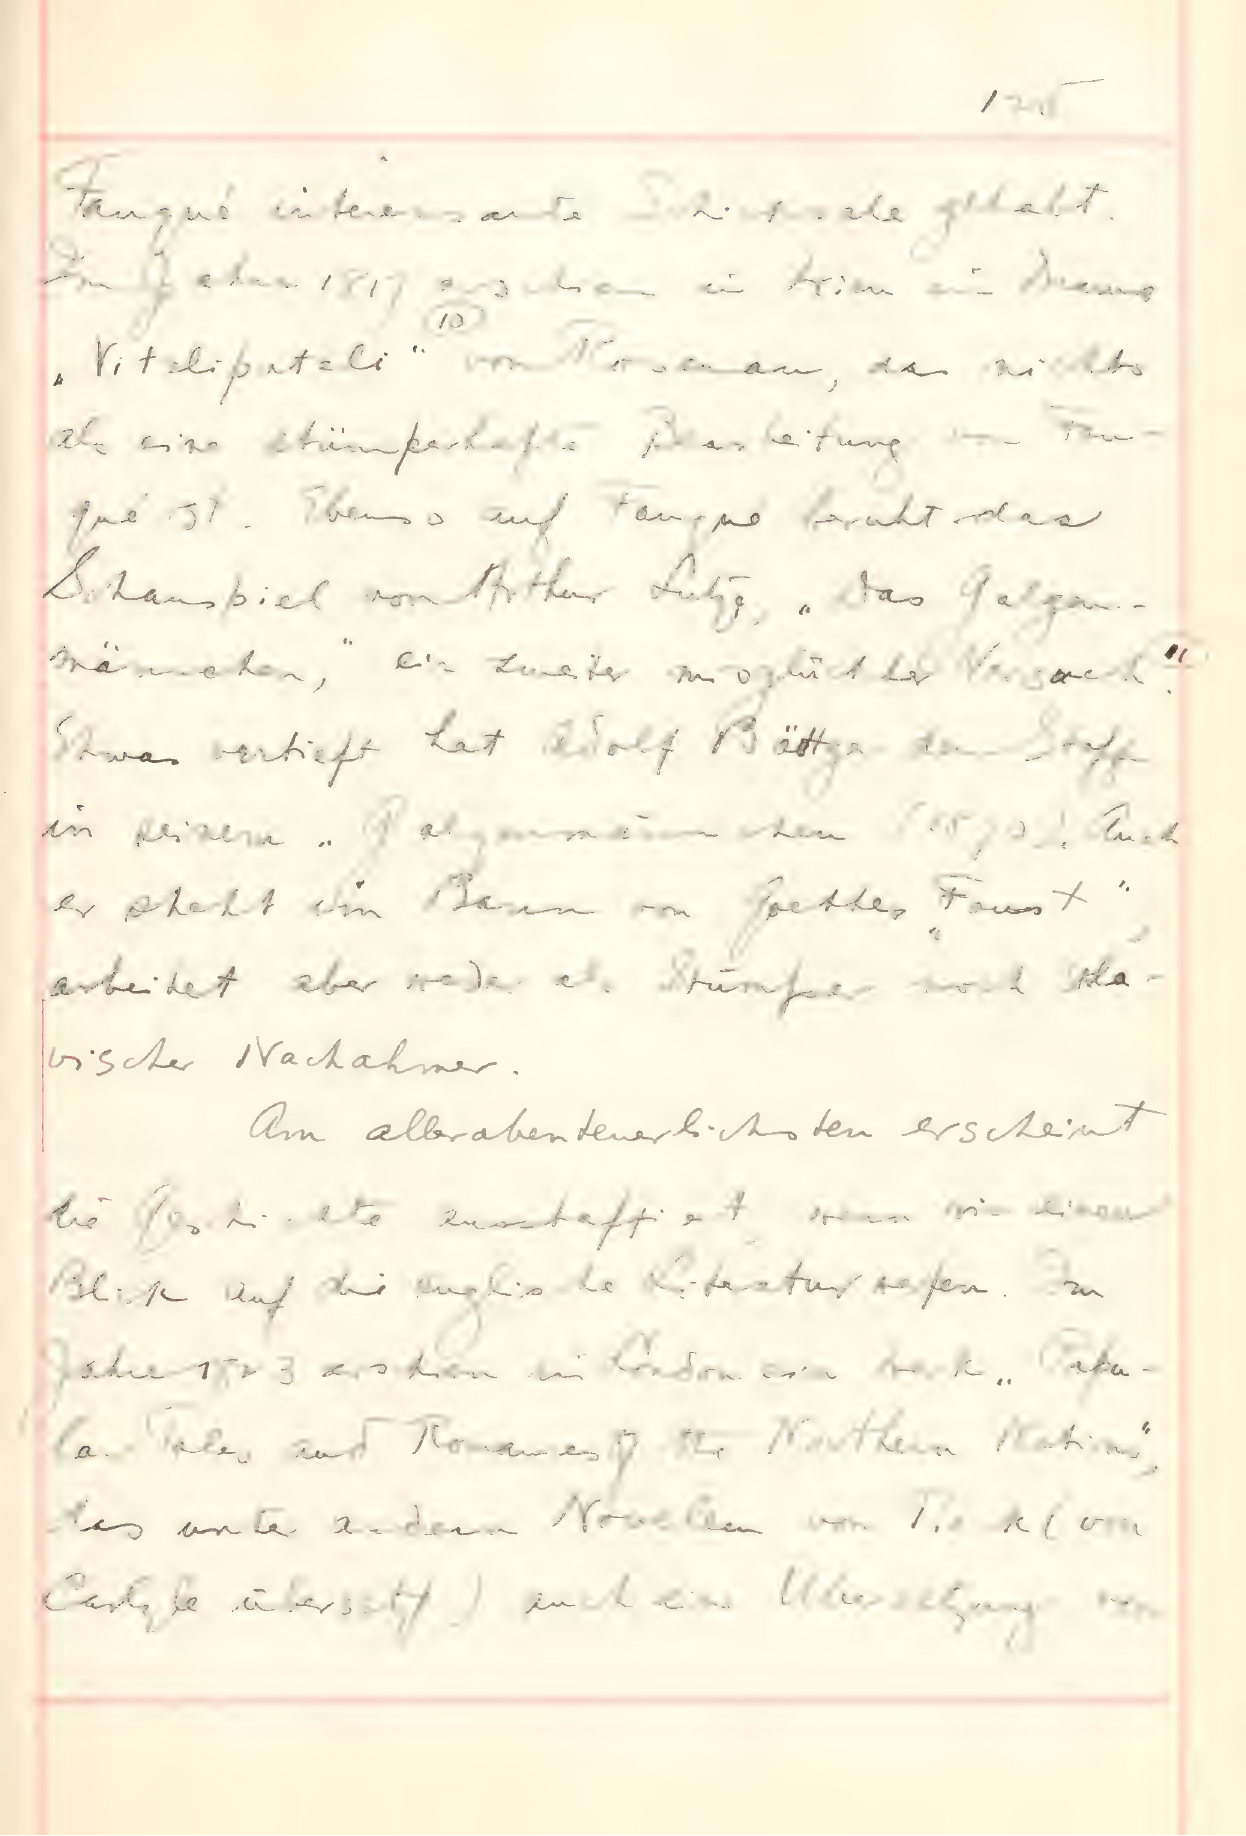 Fouqué interessante Schicksale gehabt.
Im Jahre 1817 erschien in Wien ein Drama
10
„Vitzliputzli“ von Rosenau, das nichts
als eine stümperhafte Bearbeitung von Fou-
qué ist. Ebenso auf Fouqué beruht das
Schauspiel von Arthur Lutze, „Das Galgen-
männchen,“ ein zweiter missglückter Versuch.
Etwas vertieft hat Adolf Böttger den Stoff
in seinem „Galgenmännchen (1870). Auch
er steht im Bann von Goethes „Faust“,
arbeitet aber weder als Stümper noch skla-
vischer Nachahmer.
Am allerabenteuerlichsten erscheint
die Geschichte ausstaffiert, wenn wir einen
Blick auf die englische Literatur werfen. Im
Jahre 1823 erschien in London ein Werk „Popu-
lar Tales and Romances of the Northern Nations“,
das unter andern Novellen von Tieck (von
Carlyle übersetzt) auch eine Übersetzung von